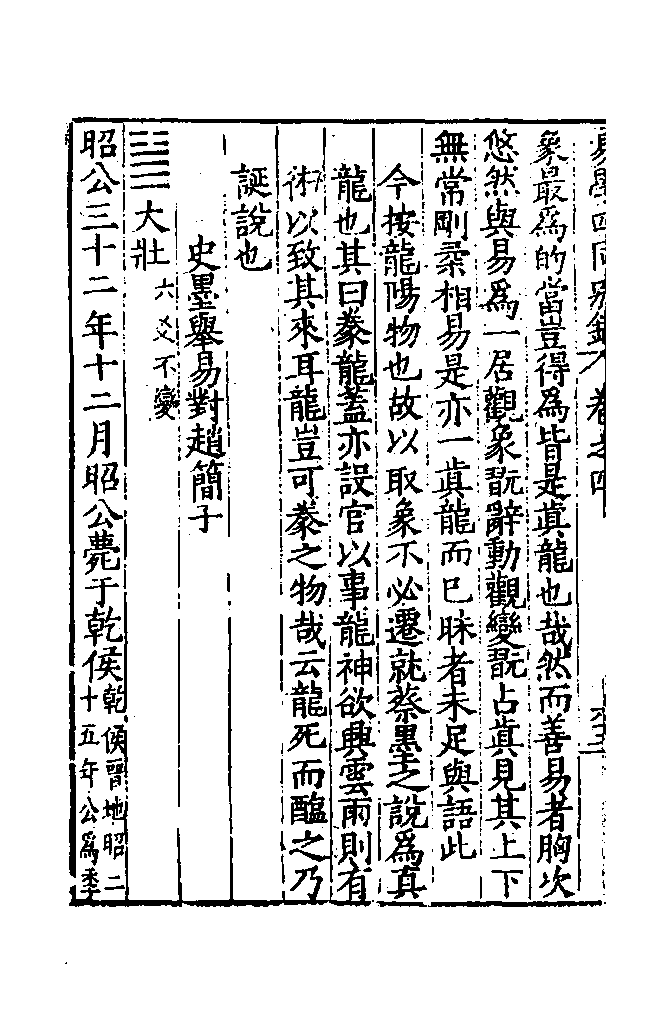 易學四同別錄 卷之四
象最為的當豈得為皆是真龍也哉然而善易者胸次
悠然與易為一居觀象翫辭動觀變翫占真見其上下
無常剛柔相易是亦一真龍而已昧者未足與語此
今按龍陽物也故以取象不必遷就蔡墨之說為真
龍也其曰豢龍蓋亦設官以事龍神欲興雲雨則有
術以致其來耳龍豈可豢之物哉云龍死而醢之乃
誕說也
史墨舉易對趙簡子
䷡大壯六爻不變
昭公三十二年十二月昭公薨于乾侯乾侯晉地昭二
十五年公為季